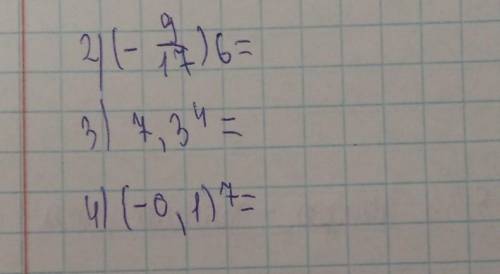 2) (- 9/17)6=
3) 7,3⁴=
4) (-0,1)⁷=